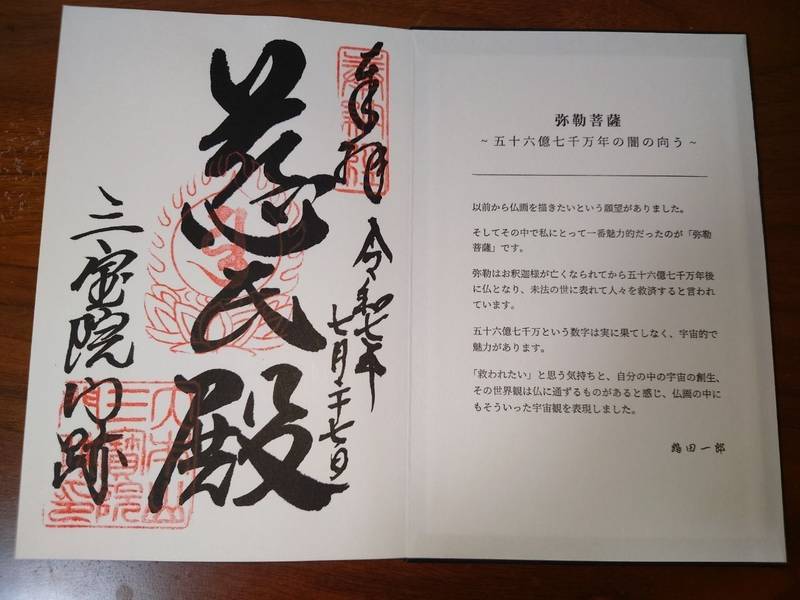 奉拝
令和七年
七月二十七日
慈氏殿
三宝院門跡
弥勒菩薩
~五十六億七千万年の闇の向う~
以前から仏画を描きたいという願望がありました。
そしてその中で私にとって一番魅力的だったのが「弥勒
菩薩」です。
弥勒はお釈迦様が亡くなられてから五十六億七千万年後
に仏となり、末法の世に表れて人々を救済すると言われ
ています。
五十六億七千万という数字は実に果てしなく、宇宙的で
魅力があります。
「救われたい」と思う気持ちと、自分の中の宇宙の創生、
その世界観は仏に通ずるものがあると感じ、仏画の中に
もそういった宇宙観を表現しました。
鶴田一郎